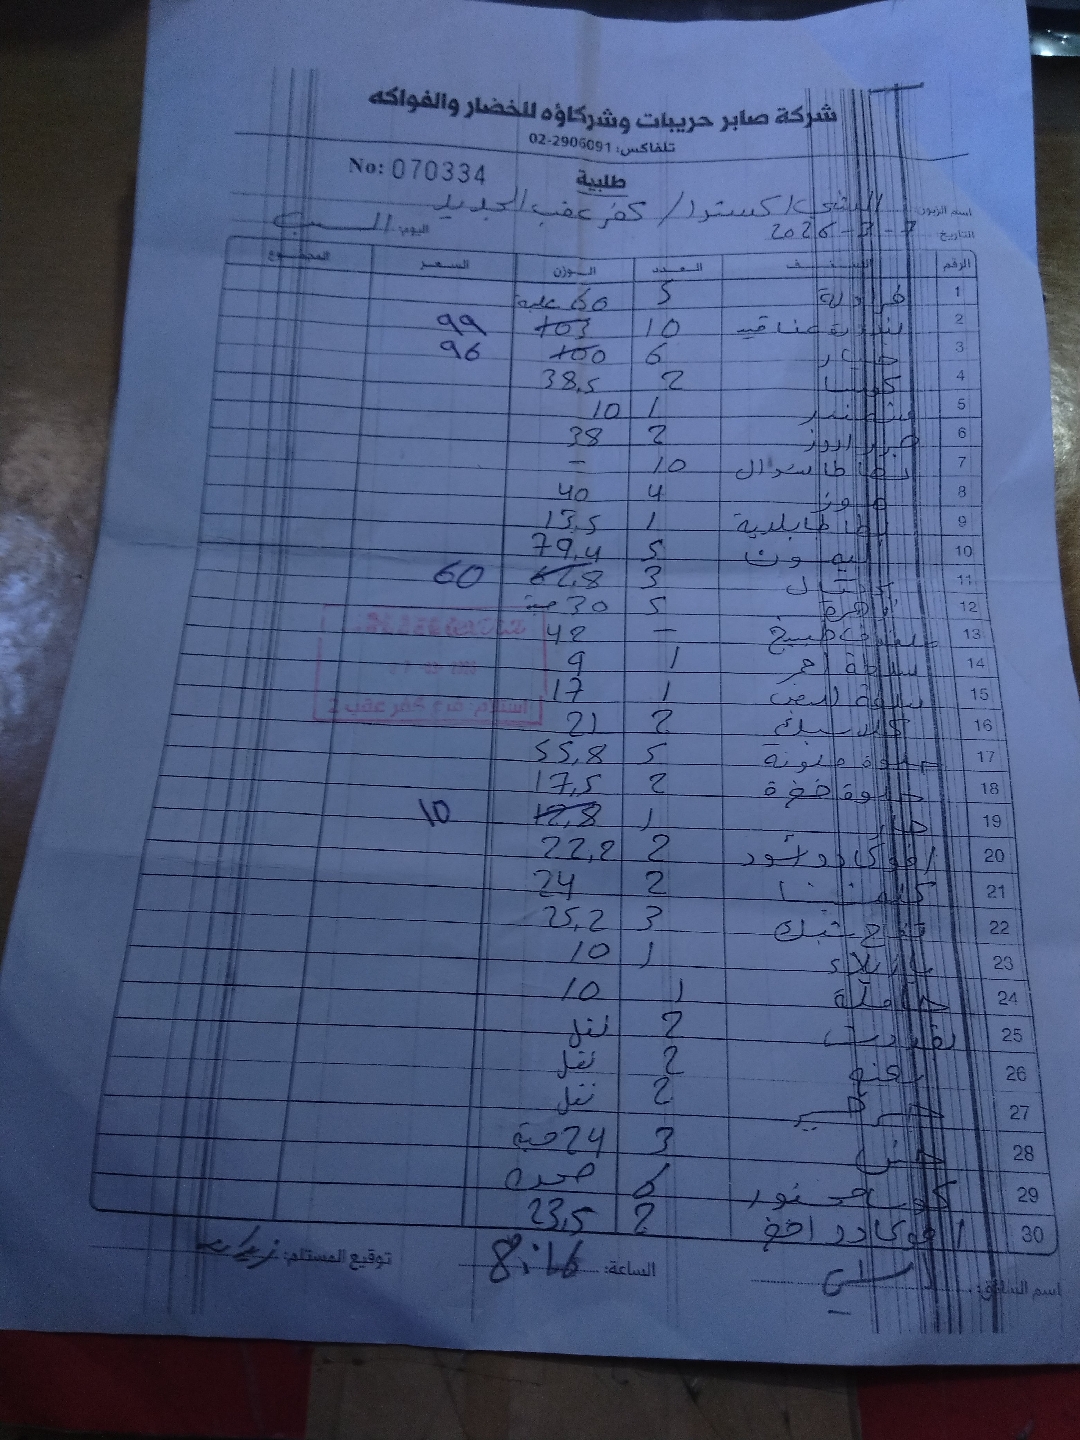 شركة صابر حريبات وشركاؤه للخضار والفواكه
تلفاكس: 02-2906091
No: 070334
طلبية
اسم الزبون: اكسترا / كفر عقب الجديد
التاريخ: 7 - 3 - 2026 اليوم: السبت
الرقم الصنف العدد الوزن السعر المجموع
1 فراولة 5 60 علبة
2 بندورة عناقيد 10 103 99
3 خيار 6 100 96
4 كوسا 2 38,5
5 شمندر 1 10
6 2 38
7 بطاطا شوال 10 -
8 موز 4 40
9 بطاطا بلدية 1 13,5
10 ليمون 5 79,4
11 برتقال 3 62,8 60
12 زهرة 5 30 حبة
13 ملفوف طبيخ - 42
14 ملفوف احمر 1 9
15 ابيض 1 17
16 2 21
17 حلوة ملونة 5 55,8
18 حلوة خضرة 2 17,5
19 حار 1 12,8 10
20 افوكادو اسود 2 22,2
21 كلمنتينا 2 24
22 تفاح 3 25,2
23 1 10
24 1 10
25 بقدونس 2 نقل
26 نعنع 2 نقل
27 2 نقل
28 خس 3 24 حبة
29 6
30 افوكادو اخضر 2 23,5
اسم السائق: الساعة: 8:16 توقيع المستلم:
استلام: فرع كفر عقب 2